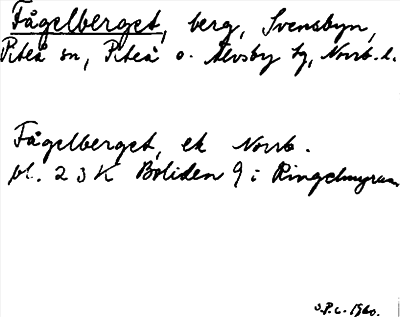 Fågelberget, berg, Svensbyn,
Piteå sn, Piteå o. Älvsby tg, Norrb. l.
Fågelberget, ek Norrb.
bl. 23 K Boliden 9 i Ringelmyran
S.P.L. 1960.